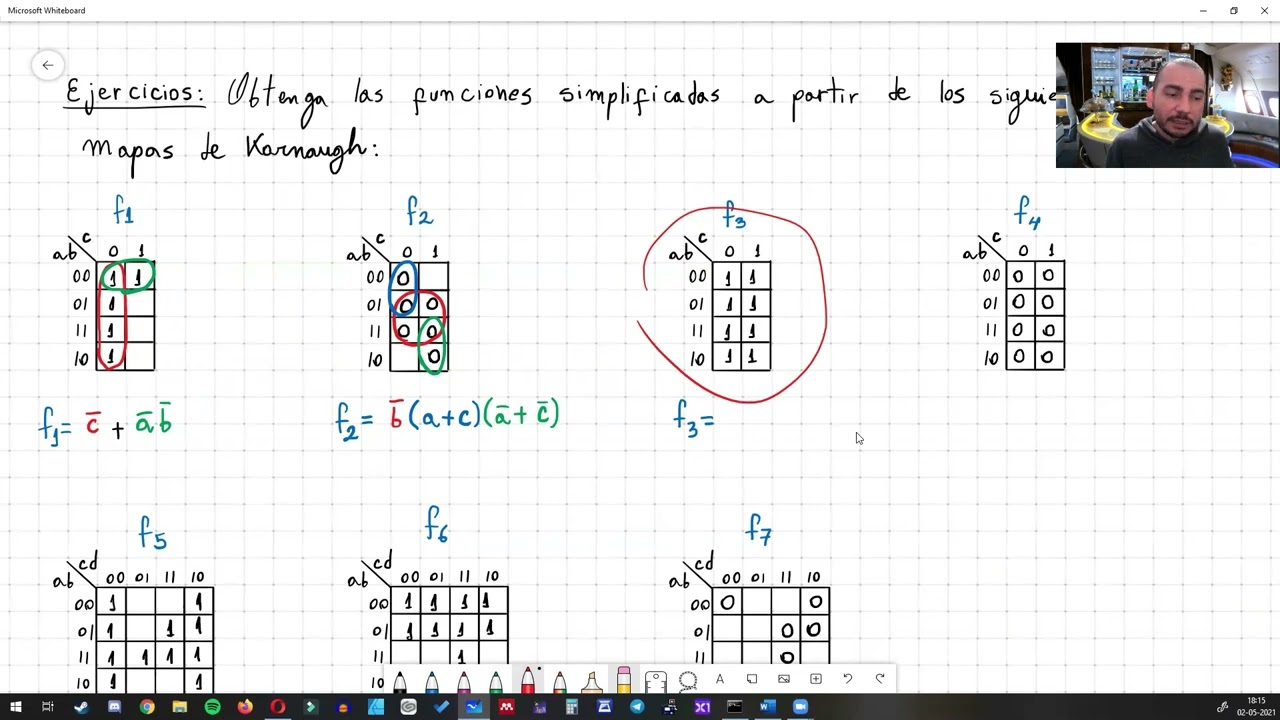 Microsoft Whiteboard
Ejercicios: Obtenga las funciones simplificadas a partir de los siguie
mapas de Karnaugh:
f1 f2 f3 f4
c c c c
ab 0 1 ab 0 1 ab 0 1 ab 0 1
00 1 1 00 0 00 1 1 00 0 0
01 1 01 0 0 01 1 1 01 0 0
11 1 11 0 0 11 1 1 11 0 0
10 1 10 0 10 1 1 10 0 0
f1= c̄ + āb̄ f2= b̄(a+c)(ā+c̄) f3=
f5 f6 f7
cd cd cd
ab 00 01 11 10 ab 00 01 11 10 ab 00 01 11 10
00 1 1 00 1 1 1 1 00 0 0
01 1 1 1 01 1 1 1 1 01 0 0
11 1 1 1 1 11 1 11 0
10 1 1 10 10
A
18:15
02-05-2021